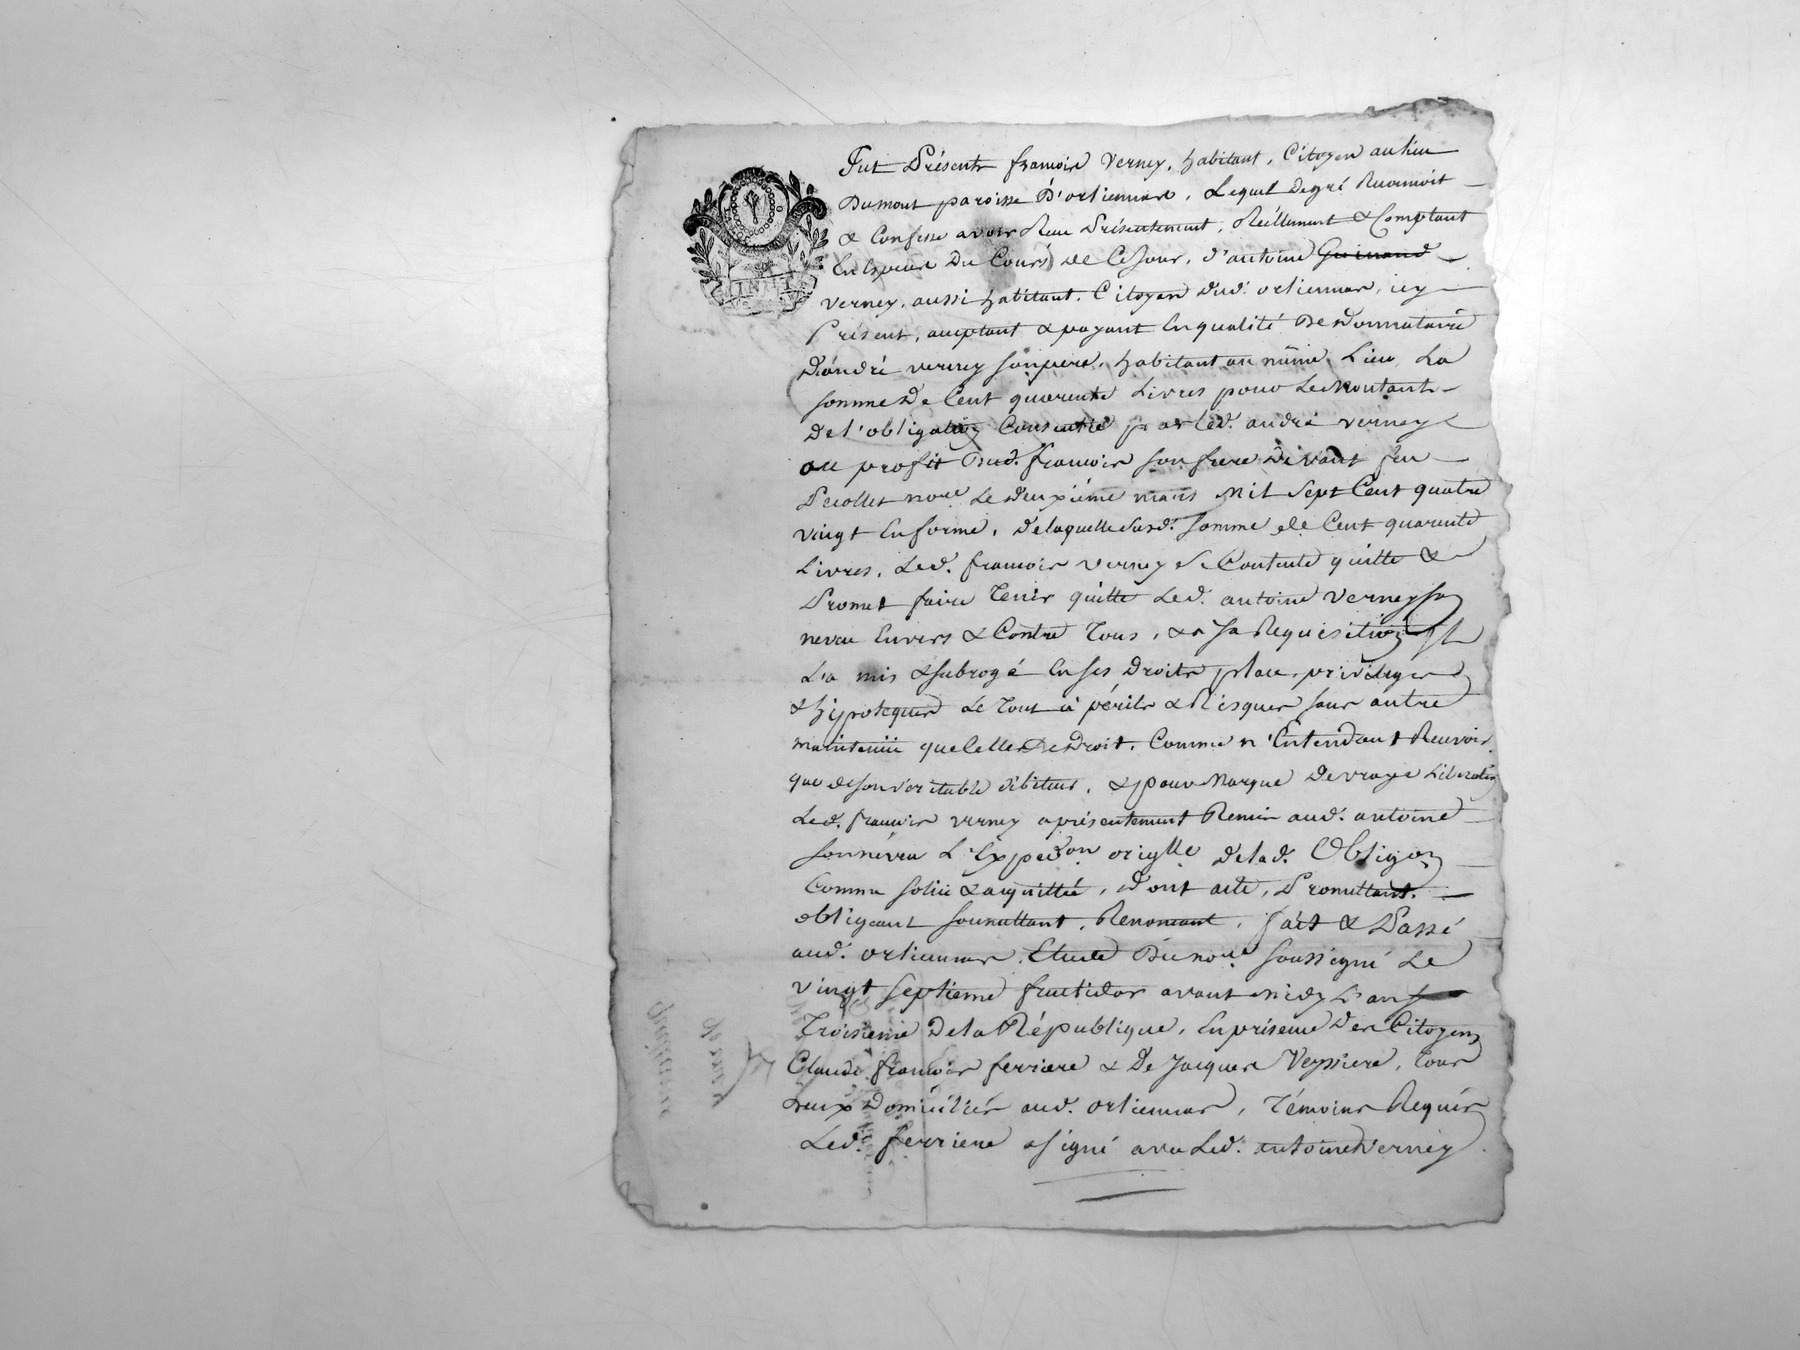 Fut Présent françois Verney, habitant, Citoyen au lieu
Dumont paroisse D'orliennas, Lequel De gré Reconnoit
& Confesse avoir Reçu Présentement, Réellement & Comptant
En Espece Du Cours de Ce Jour, d'antoine Guinand
verney, aussi habitant, Citoyen dud. orliennas, icy
Présent, acceptant & payant En qualité De Donnataire
D'andré verney son pere, habitant au même Lieu, La
somme De Cent quarente Livres pour Le Montant
De l'obligation Consentie par led. andré verney
au profit Dud. françois son frere Devant feu
Perollet nore Le Deuxième mars Mil Sept Cent quatre
vingt En forme, De laquelle Susd. Somme de Cent quarente
Livres, Led. françois verney Se Contente quitte &
Promet faire Tenir quitte Led. antoine verney son
neveu Envers & Contre Tous, & a Sa Requisition il
L'a mis & subrogé En ses Droits, place, privileges
& hypoteques Le Tout à périls & Risques sans autre
maintenüe que Celle De Droit, Comme n'Entendant Recevoir
que de son véritable débiteur, & pour Marque De vraye Libération
Led. françois verney a présentement Remis aud. antoine
son néveu L'Expedon origlle De lad. Obligon
Comme solüe & acquittée, Dont acte, Promettant,
obligeant soumettant, Renonceant, fait & Passé
aud. orliennas, Etude Du nore soussigné Le
vingt septieme fructidor avant midy L'an
Troisieme De la République, En présence Des Citoyens
Claude françois ferriere & De Jacques Veyssiere, Tous
Deux Domiciliés aud. orliennas, Témoins Requis
Led. ferriere a signé avec Led. antoine Verney